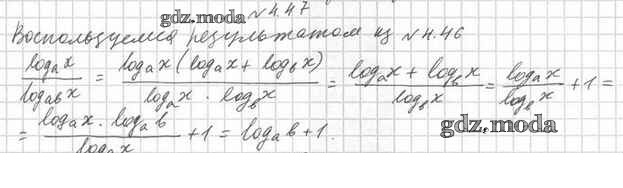 №4.47
gdz.moda
Воспользуемся результатом из №4.46
logₐx / log_{ab}x = logₐx(logₐx + log_b x) / logₐx · log_b x = logₐx + log_b x / log_b x = logₐx / log_b x + 1 =
= logₐx · logₐb / logₐx + 1 = logₐb + 1.
gdz.moda